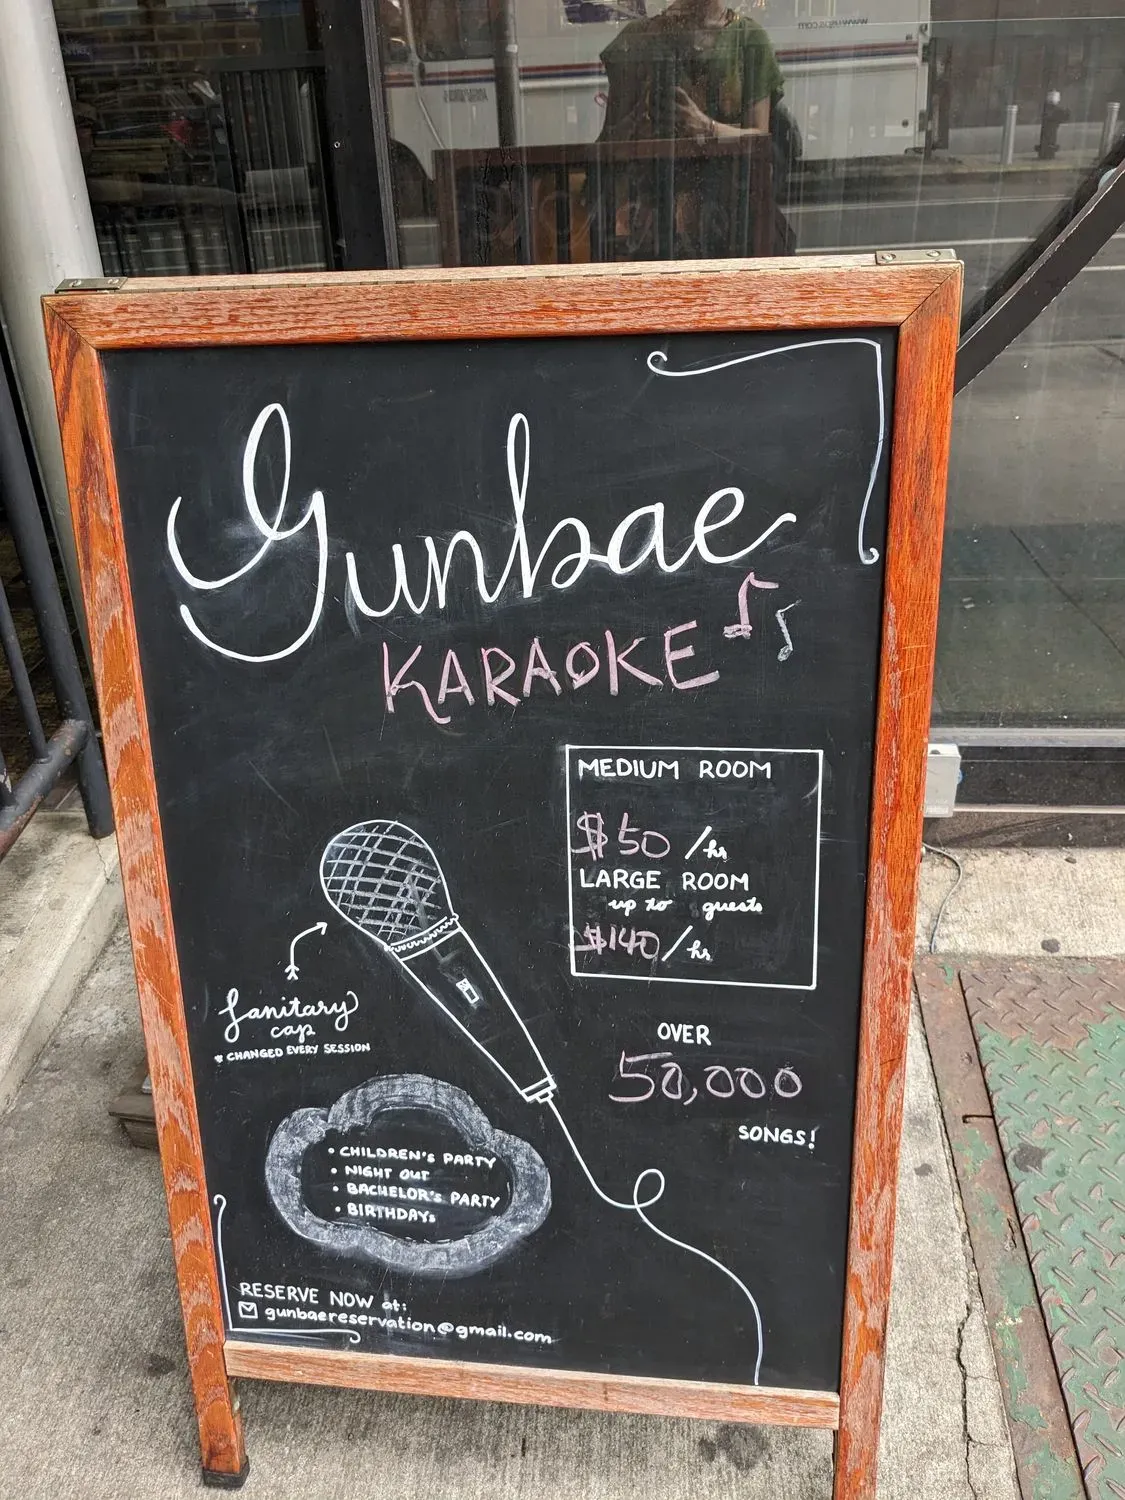 Gunbae
KARAOKE
MEDIUM ROOM
$50 /hr
LARGE ROOM
up to guests
$140/hr
Sanitary
cap
* CHANGED EVERY SESSION
OVER
50,000
SONGS!
• CHILDREN'S PARTY
• NIGHT OUT
• BACHELOR'S PARTY
• BIRTHDAYs
RESERVE NOW at:
gunbaereservation@gmail.com